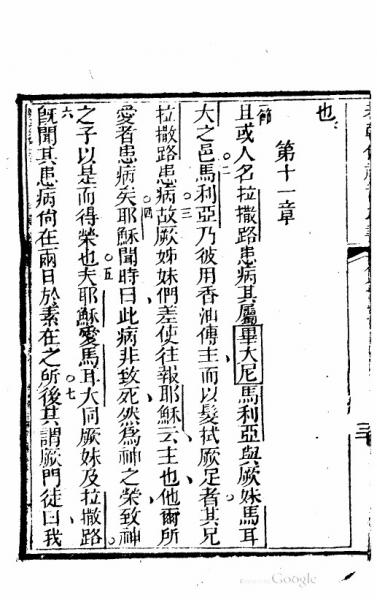 也
第十一章
一節
且或人名拉撒路患病其屬畢大尼馬利亞與厥妹馬耳
二
大之邑馬利亞乃彼用香油傅主而以髮拭厥足者其兄
三
拉撒路患病故厥姊妹們差使往報耶穌云主也他爾所
四
愛者患病矣耶穌聞時曰此病非致死然為神之榮致神
五
之子以是而得榮也夫耶穌愛馬耳大同厥妹及拉撒路
六 七
既聞其患病尚在兩日於素在之所後其謂厥門徒曰我
Google